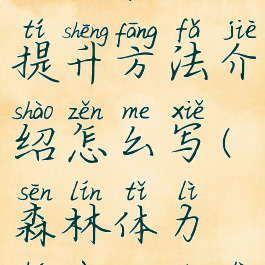 tí shēng fāng fǎ jiè
提升方法介
shào zěn me xiě
绍怎么写(
sēn lín tǐ lì
森林体力